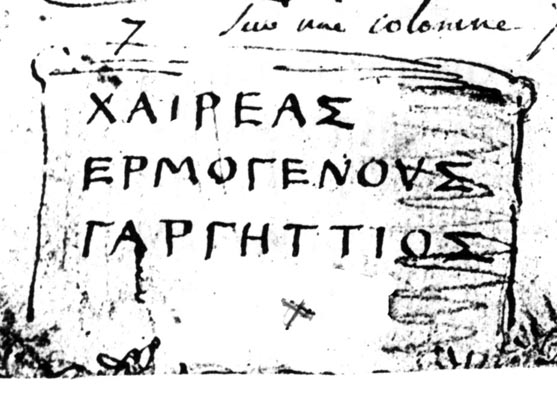 7
Sur une colonne
ΧΑΙΡΕΑΣ
ΕΡΜΟΓΕΝΟΥΣ
ΓΑΡΓΗΤΤΙΟΣ